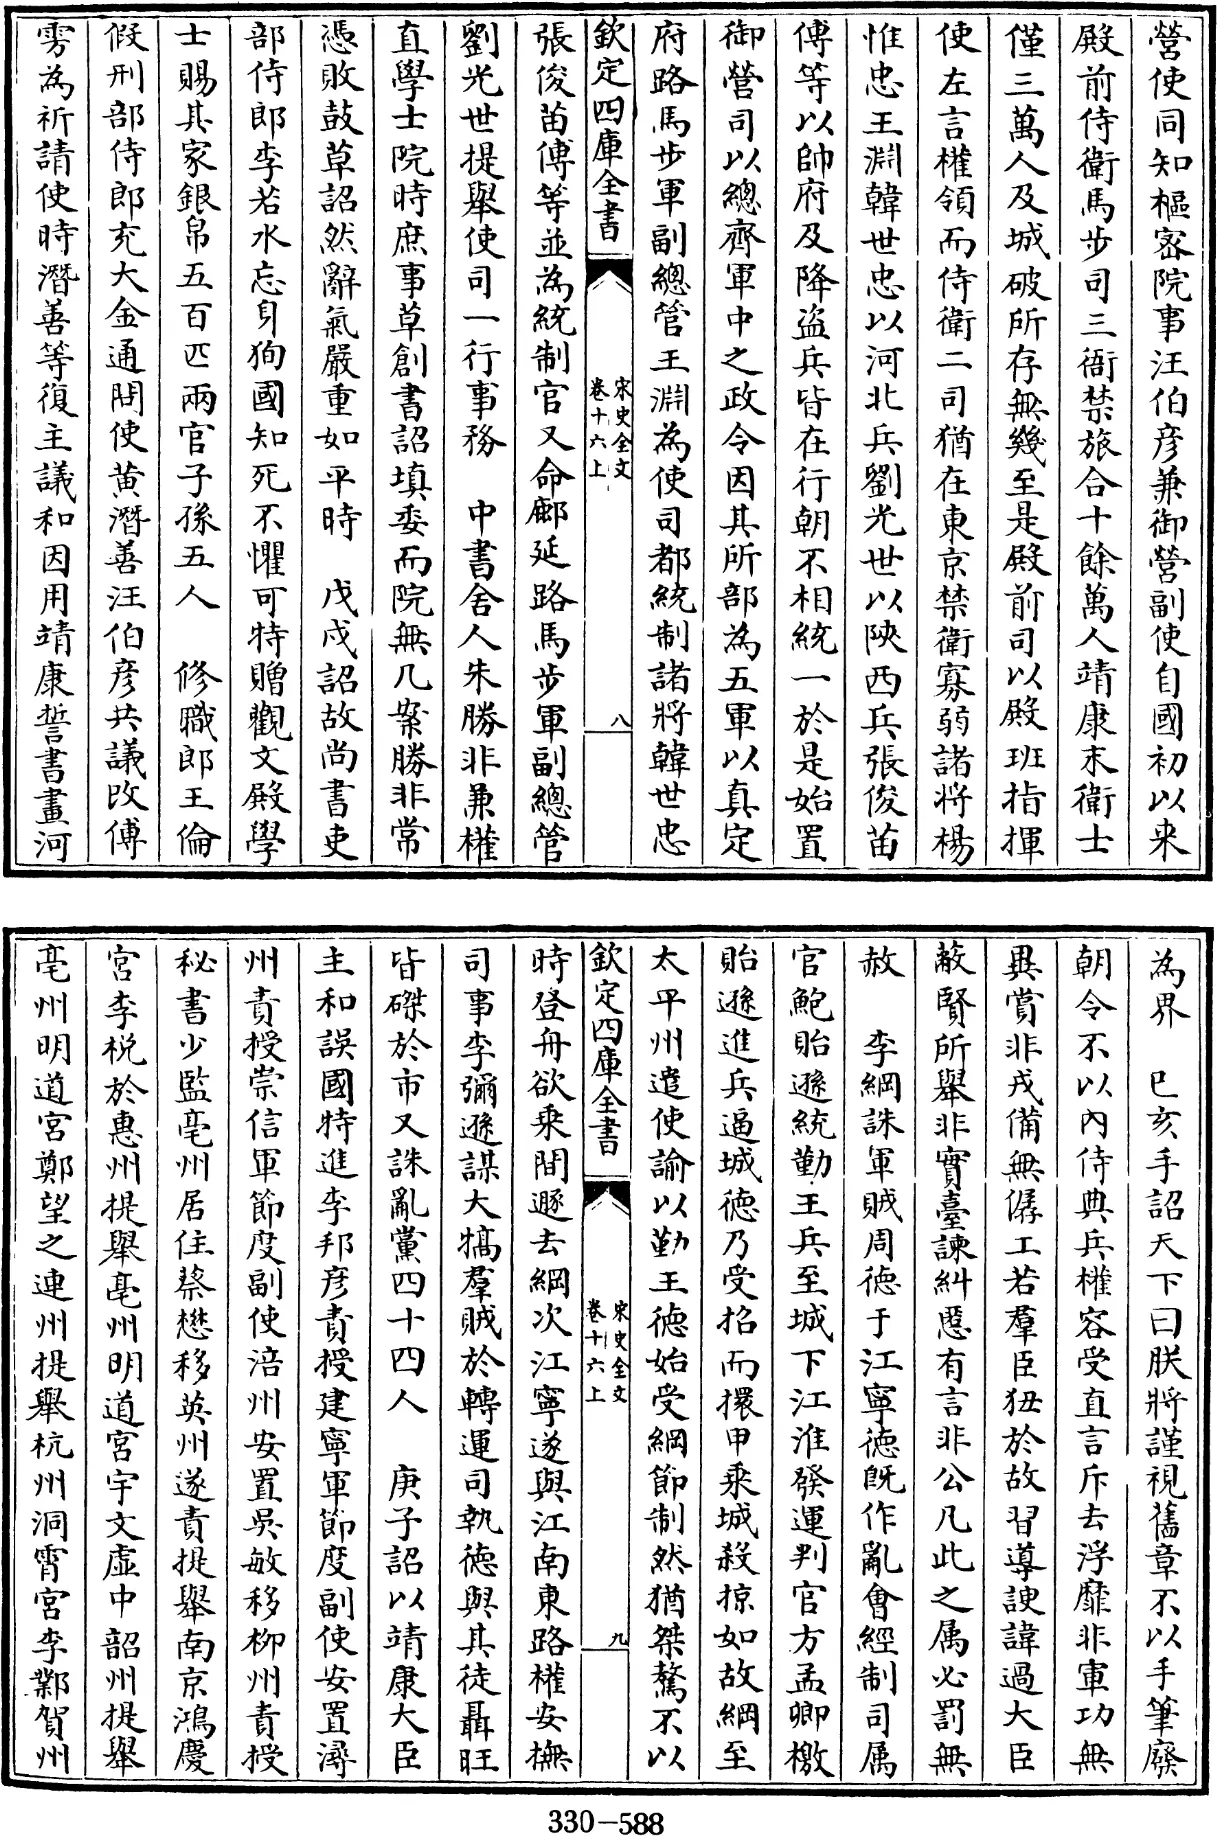 營使同知樞密院事汪伯彦兼御營副使自國初以来
殿前侍衛馬步司三衙禁旅合十餘萬人靖康末衛士
僅三萬人及城破所存無幾至是殿前司以殿班指揮
使左言權領而侍衛二司猶在東京禁衛寡弱諸將楊
惟忠王淵韓世忠以河北兵劉光世以陜西兵張俊苗
傅等以帥府及降盗兵皆在行朝不相統一於是始置
御營司以總齊軍中之政令因其所部為五軍以真定
府路馬步軍副總管王淵為使司都統制諸將韓世忠
欽定四庫全書
宋史全文
卷十六上
八
張俊苗傅等並為統制官又命鄜延路馬步軍副總管
劉光世提舉使司一行事務　中書舍人朱勝非兼權
直學士院時庶事草創書詔填委而院無几案勝非常
憑敗鼓草詔然辭氣嚴重如平時　戊戌詔故尚書吏
部侍郎李若水忘身狥國知死不懼可特贈觀文殿學
士賜其家銀帛五百匹兩官子孫五人　修職郎王倫
假刑部侍郎充大金通問使黄潛善汪伯彦共議改傅
雱為祈請使時潛善等復主議和因用靖康誓書畫河
為界　已亥手詔天下曰朕將謹視舊章不以手筆廢
朝令不以內侍典兵權容受直言斥去浮靡非軍功無
異賞非戎備無僝工若羣臣狃於故習導諛諱過大臣
蔽賢所舉非實臺諫糾慝有言非公凡此之属必罰無
赦　李綱誅軍賊周德于江寧德旣作亂會經制司属
官鮑貽遜統勤王兵至城下江淮發運判官方孟卿檄
貽遜進兵逼城德乃受招而擐甲乘城殺掠如故綱至
太平州遣使諭以勤王德始受綱節制然猶桀驁不以
欽定四庫全書
宋史全文
卷十六上
九
時登舟欲乘間遯去綱次江寧遂與江南東路權安撫
司事李彌遜謀大犒羣賊於轉運司執德與其徒聶旺
皆磔於市又誅亂黨四十四人　庚子詔以靖康大臣
主和誤國特進李邦彦責授建寧軍節度副使安置潯
州責授崇信軍節度副使涪州安置吳敏移柳州責授
秘書少監亳州居住蔡懋移英州遂責提舉南京鴻慶
宮李梲於惠州提舉亳州明道宮宇文虛中韶州提舉
亳州明道宮鄭望之連州提舉杭州洞霄宮李鄴賀州
330-588